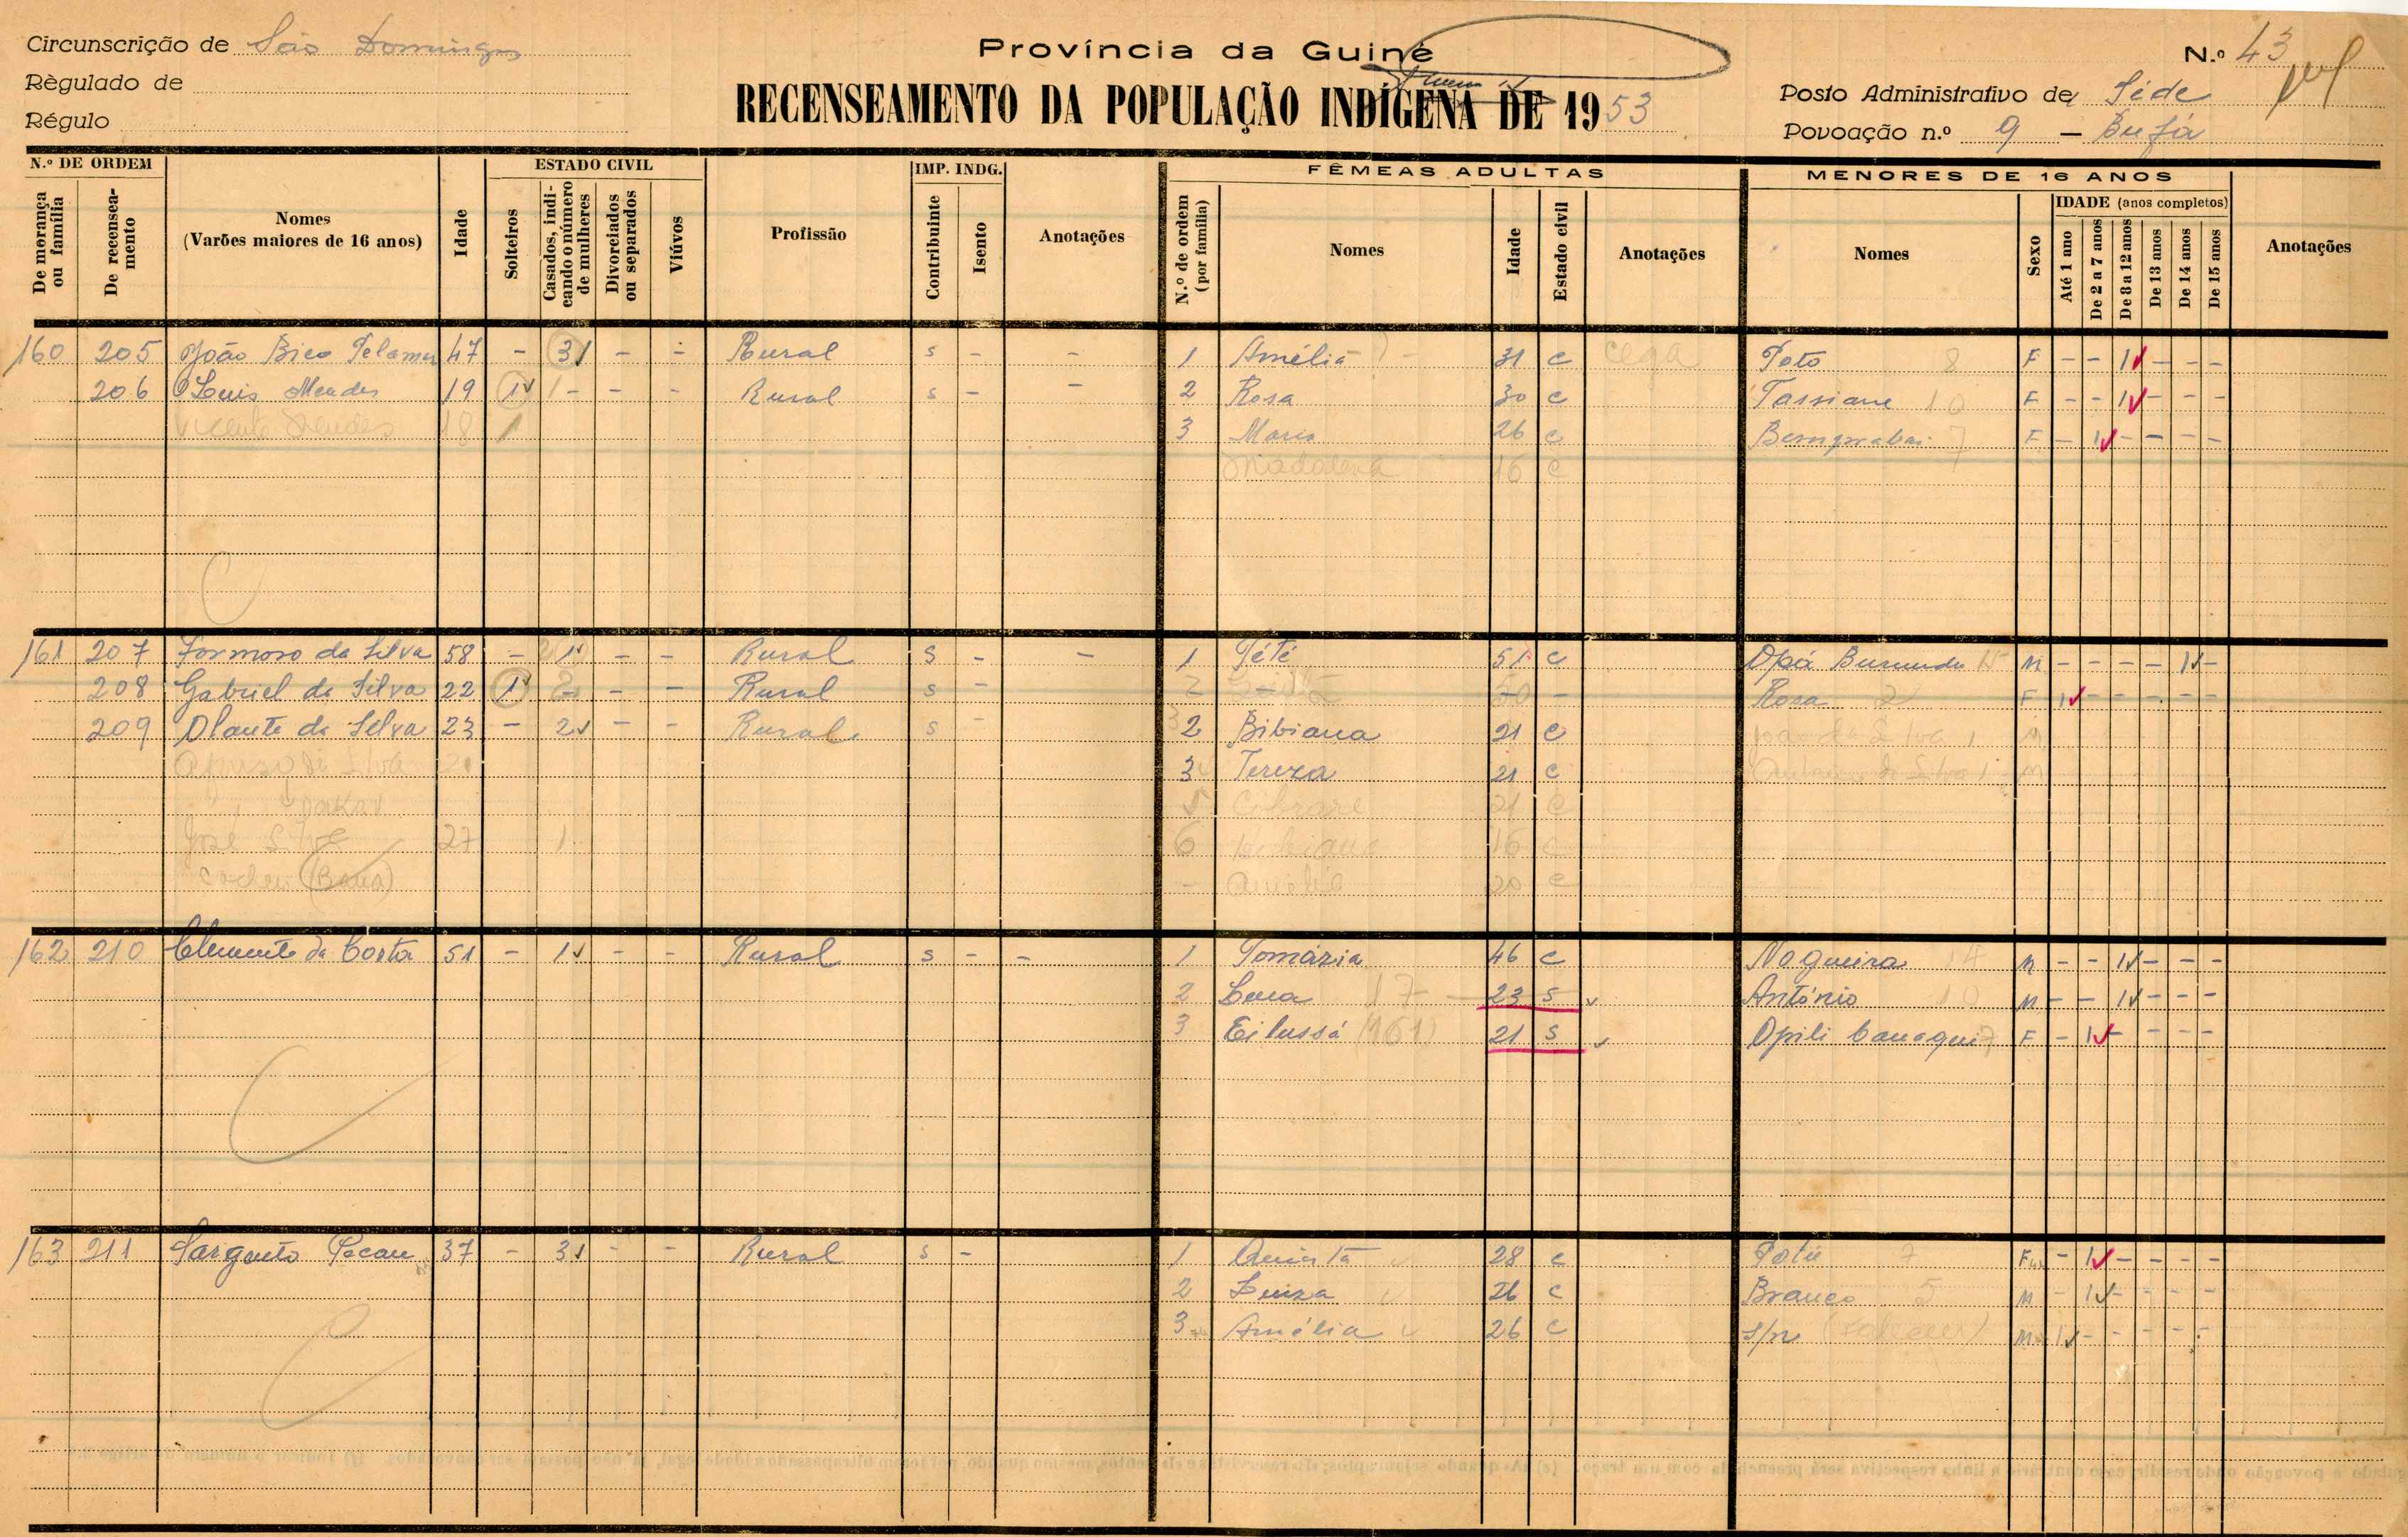 Circunscrição de São Domingos
Règulado de
Régulo
Província da Guiné
RECENSEAMENTO DA POPULAÇÃO INDÍGENA DE 1953
N.º 43
Posto Administrativo de Séde
Povoação n.º 9 — Bufá
N.º DE ORDEM
De morança ou família
De recenseamento
Nomes
(Varões maiores de 16 anos)
Idade
ESTADO CIVIL
Solteiros
Casados, indicando o número de mulheres
Divorciados ou separados
Viúvos
Profissão
IMP. INDG.
Contribuinte
Isento
Anotações
FÊMEAS ADULTAS
N.º de ordem (por família)
Nomes
Idade
Estado civil
Anotações
MENORES DE 16 ANOS
Nomes
Sexo
IDADE (anos completos)
Até 1 ano
De 2 a 7 anos
De 8 a 12 anos
De 13 anos
De 14 anos
De 15 anos
Anotações
160 205 João Bico 47 - 3 - - Rural s - - 1 Amélia 31 c cega Poto 8 F - - 1 - - -
206 Luis Mendes 19 1 - - - Rural s - - 2 Rosa 30 c Tassiane 10 F - - 1 - - -
Vicente Mendes 18 3 Maria 26 c 7 F - 1 - - - -
Madalena 16 c
161 207 Formoso da Silva 58 - 1 - - Rural s - - 1 Tété 51 c Opá M - - - - 1 -
208 Gabriel da Silva 22 1 - - - Rural s - 2 50 - Rosa 2 F 1 - - - - -
209 Olante da Silva 23 - 2 - - Rural s - 2 Bibiana 21 c João da Silva 1 M
Afonso da Silva 3 Tereza 21 c da Silva M
Dakar 5 21 c
José Silva 27 1 6 16 c
20 c
162 210 Clemente da Costa 51 - 1 - - Rural s - - 1 Tomázia 46 c Nogueira 14 M - - 1 - - -
2 17 23 s António 10 M - - 1 - - -
3 Eilussá (161) 21 s Opili 7 F - 1 - - - -
163 211 Sargento Pecau 37 - 3 - - Rural s - 1 28 c 7 F - 1 - - - -
2 Luiza 26 c Branco 5 M - 1 - - - -
3 Amélia 26 c s/n M 1 - - - - -